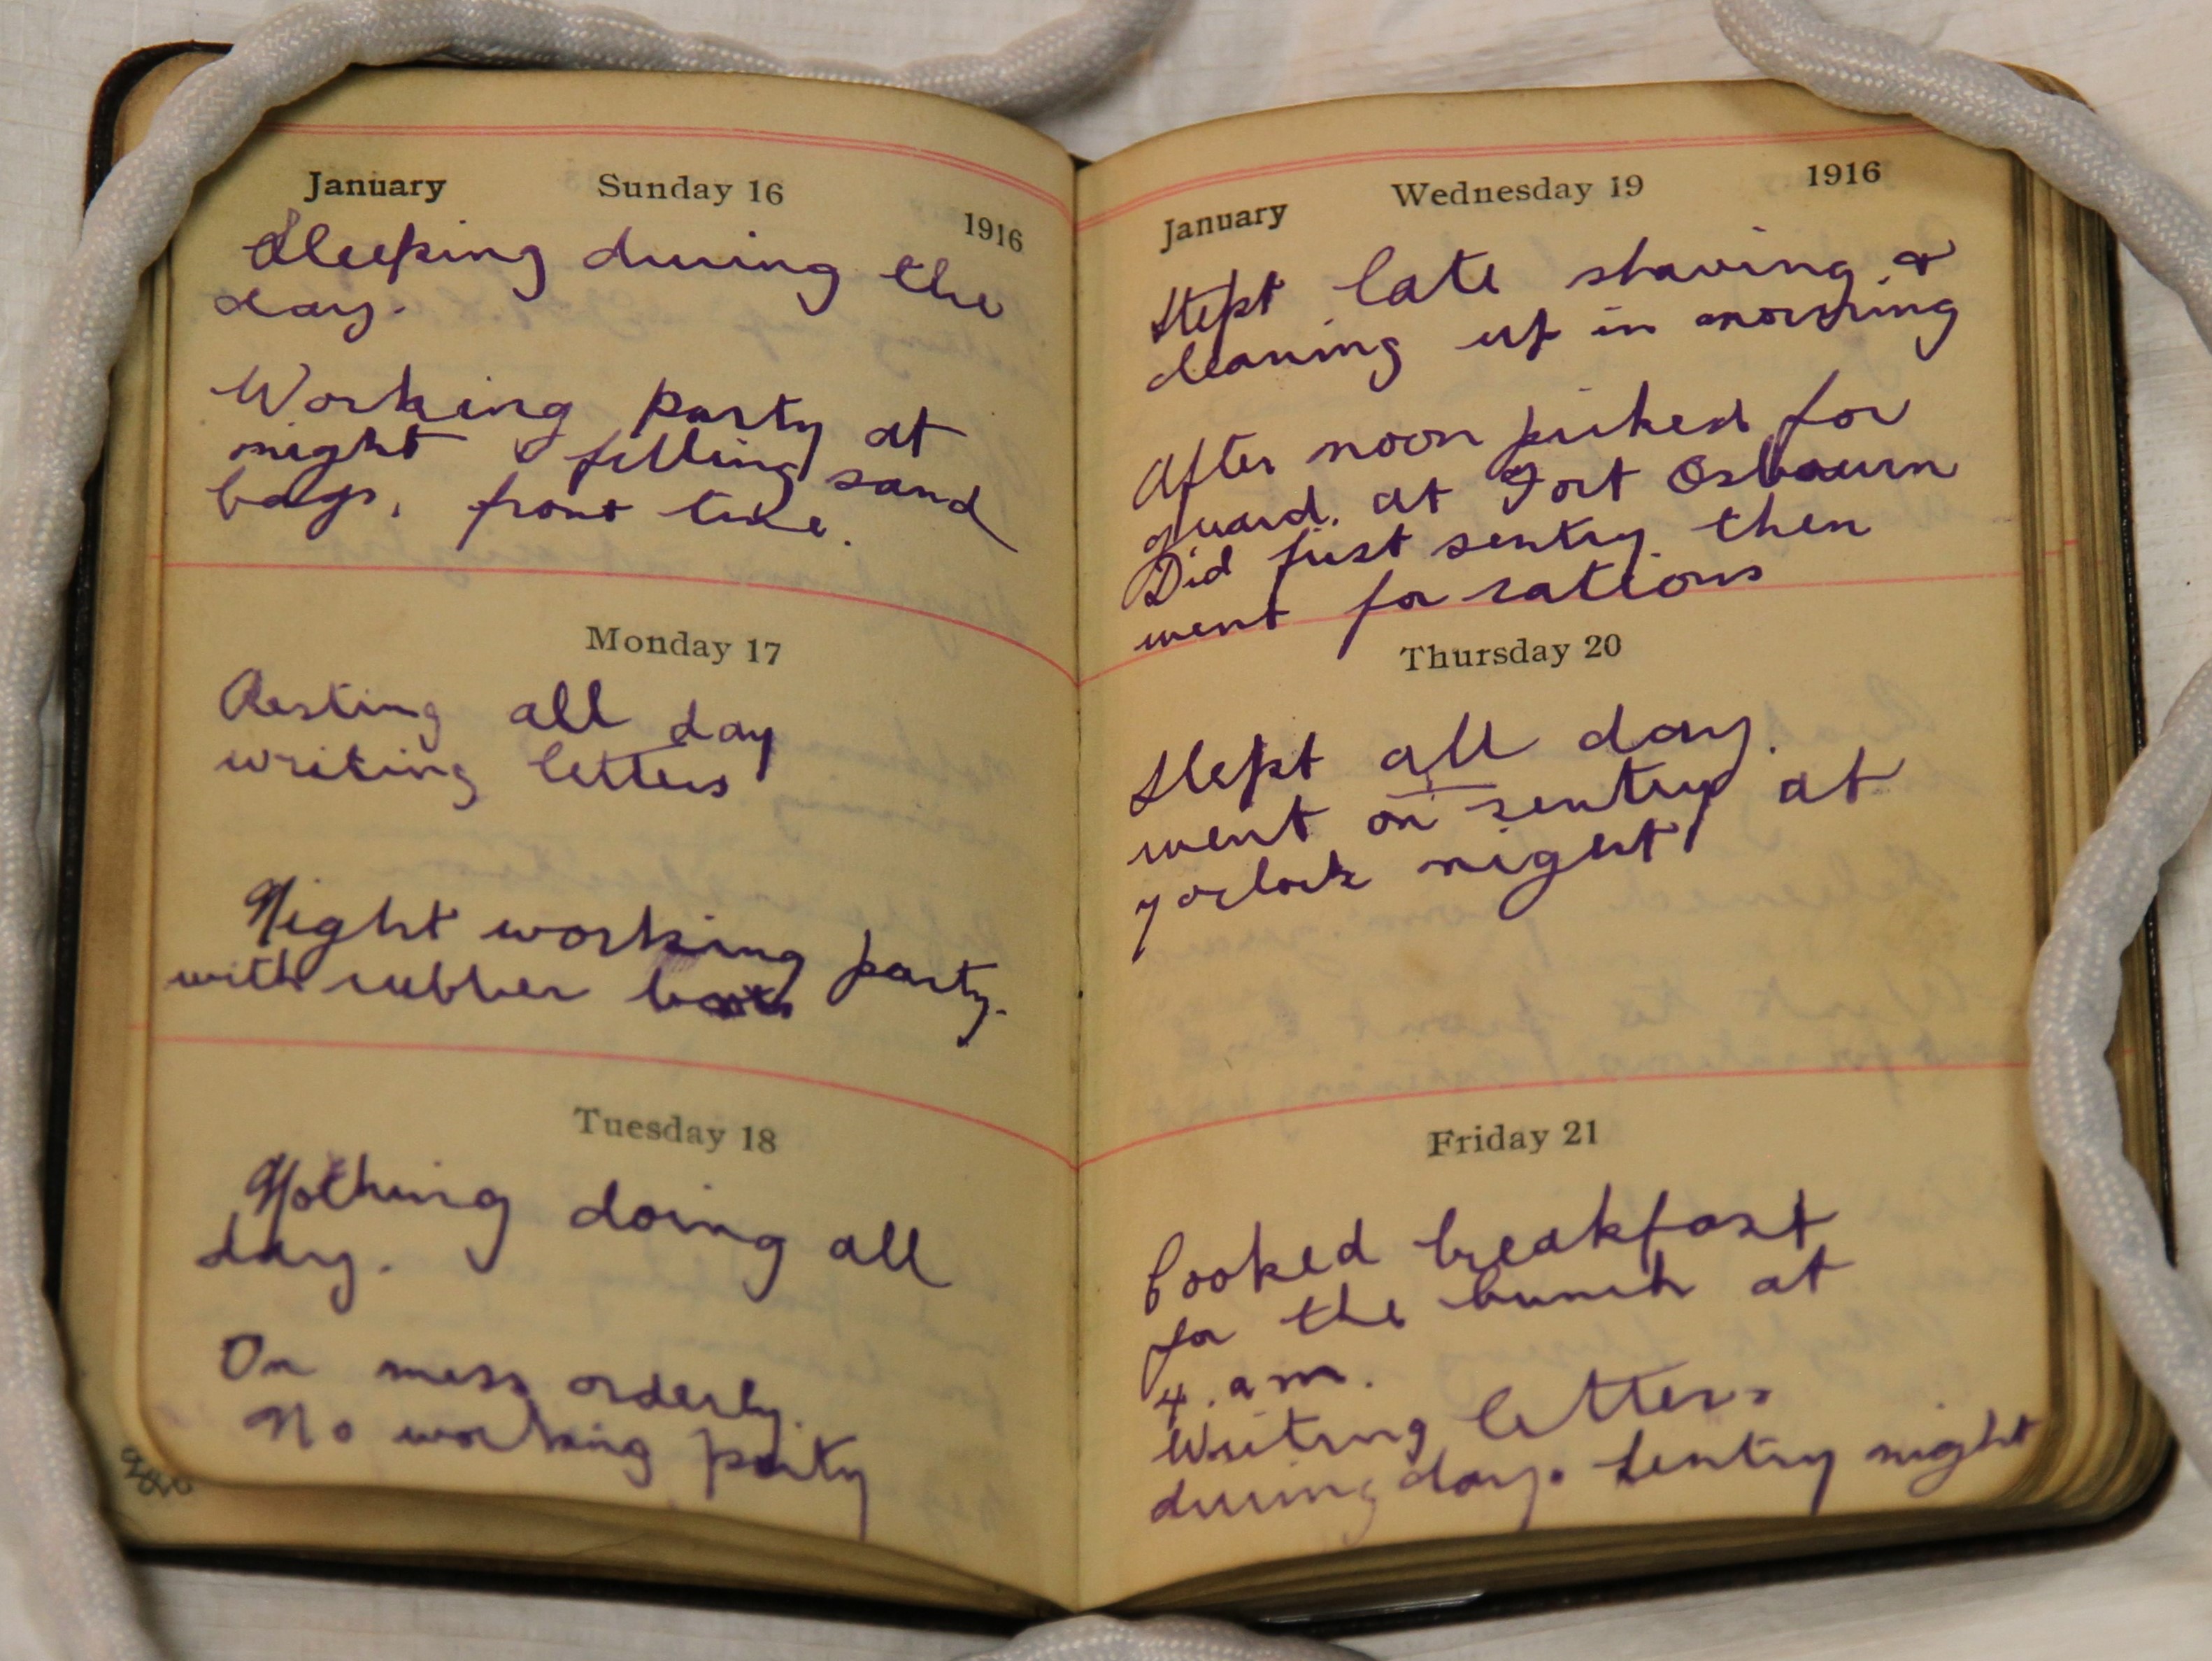 January Sunday 16 1916
Sleeping during the
day.
Working party at
night & filling sand
bags, front line.
Monday 17
Resting all day
writing letters
Night working party.
with rubber boots
Tuesday 18
Nothing doing all
day.
On mess orderly.
No working party
January Wednesday 19 1916
Slept late shaving &
cleaning up in morning
After noon picked for
guard. at Fort Osbourn
Did first sentry. then
went for rations
Thursday 20
Slept all day.
went on sentry at
7 oclock night
Friday 21
Cooked breakfast
for the bunch at
4. am.
Writing letters
during day. Sentry night